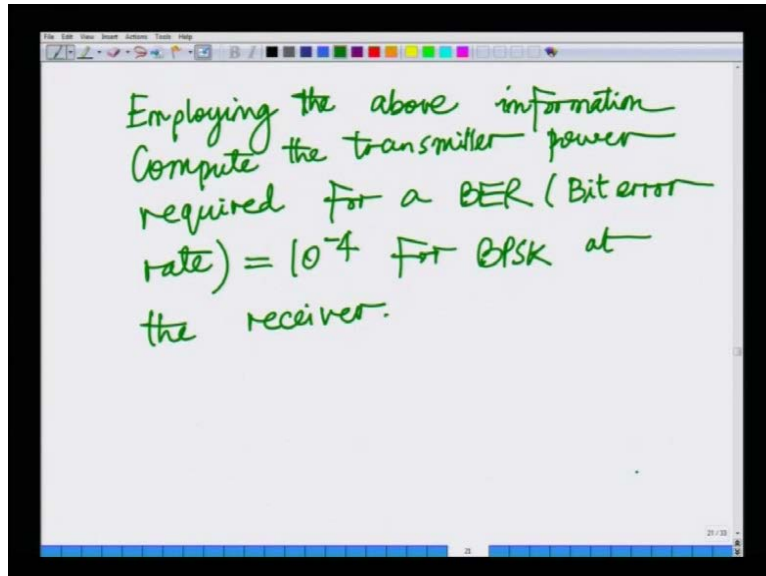 File Edit View Insert Actions Tools Help
Employing the above information
Compute the transmitter power
required for a BER (Bit error
rate) = 10^-4 for BPSK at
the receiver.
21/33
21